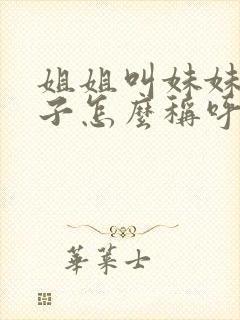 姐姐叫妹妹
子怎麼稱呼
華萊士